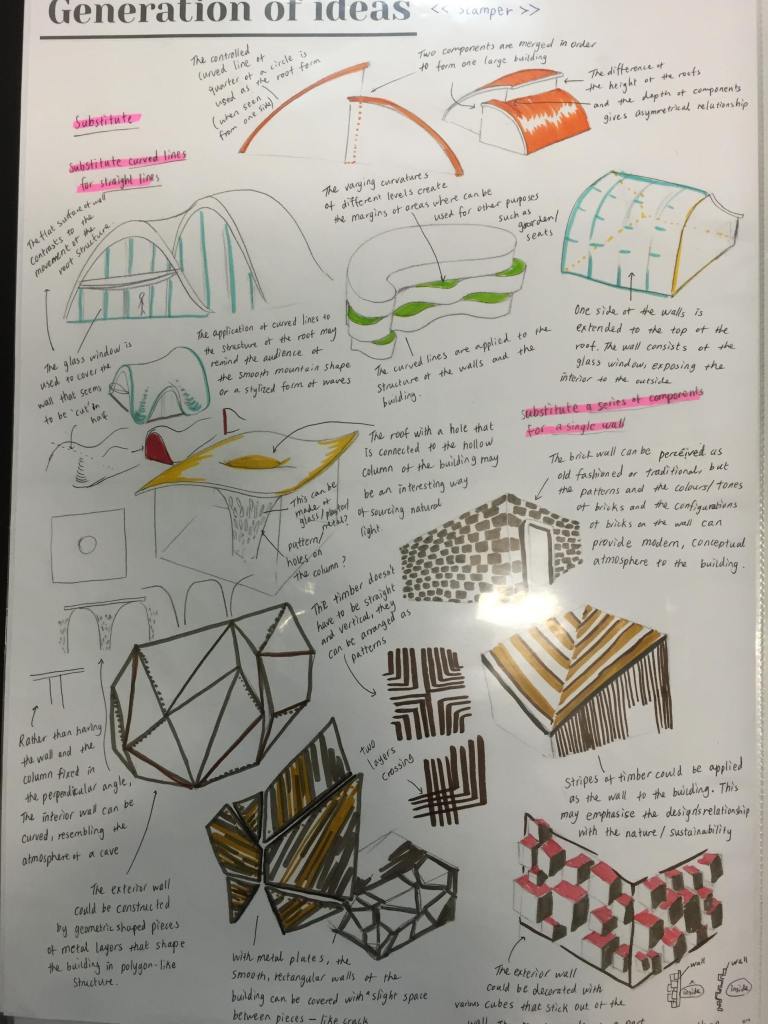 Generation of ideas
<< Scamper >>
Substitute
Substitute curved lines
for straight lines
The controlled
curved line of
quarter of a circle is
used as the roof form
(when seen
from one side)
Two components are merged in order
to form one large building
The difference of
the height of the roofs
and the depth of components
gives asymmetrical relationship
The flat surface of wall
contrasts to the
movement of the
roof structure.
The varying curvatures
of different levels create
the margins of areas where can be
used for other purposes
such as
garden/
seats
The glass window is
used to cover the
wall that seems
to be 'cut' in
half
The application of curved lines to
the structure of the roof may
remind the audience of
the smooth mountain shape
or a stylized form of waves
The curved lines are applied to the
structure of the walls and the
building.
One side of the walls is
extended to the top of the
roof. The wall consists of the
glass window, exposing the
interior to the outside
Substitute a series of components
for a single wall
The roof with a hole that
is connected to the hollow
column of the building may
be an interesting way
of sourcing natural
light.
This can be
made of
glass/plaster/
metal?
pattern/
holes on
the column?
The brick wall can be perceived as
old fashioned or traditional, but
the patterns and the colours/tones
of bricks and the configurations
of bricks on the wall can
provide modern, conceptual
atmosphere to the building.
The timber doesn't
have to be straight
and vertical, they
can be arranged as
patterns
two
layers
crossing
Rather than having
the wall and the
column fixed in
the perpendicular angle,
The interior wall can be
curved, resembling the
atmosphere of a cave
Stripes of timber could be applied
as the wall to the building. This
may emphasise the design's relationship
with the nature/sustainability
The exterior wall
could be constructed
by geometric shaped pieces
of metal layers that shape
the building in polygon-like
structure.
with metal plates, the
smooth, rectangular walls of the
building can be covered with slight space
between pieces – like crack
The exterior wall
could be decorated with
various cubes that stick out of the
wall.
wall
inside
wall
inside